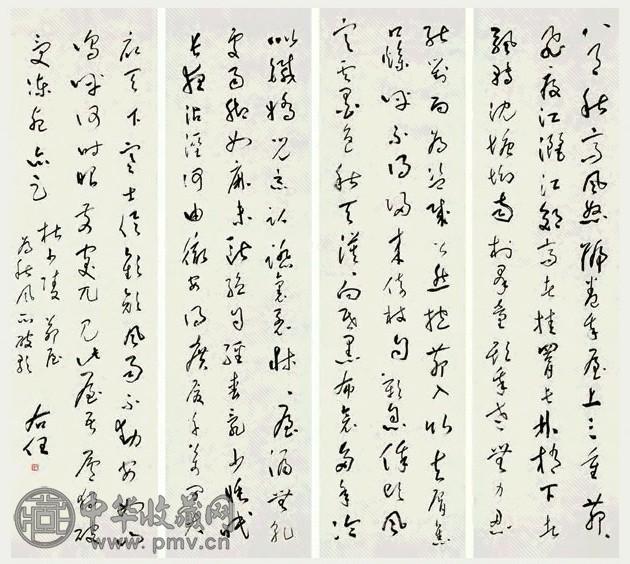 八月秋高風怒號卷我屋上三重茅、
飛度江灑江郊高者挂罥長林梢下者
飄轉沈塘坳南村群童欺我老無力忍
能對面為盜賊公然抱茅入竹去脣焦
口燥呼不得歸來倚杖自歎息俄頃風
定雲墨色秋天漠、向昏黑布衾多年冷
似鐵嬌兒惡臥踏裏裂牀、屋漏無乾
處雨腳如麻未斷絕自經喪亂少睡眠
長夜沾溼何由徹安得廣廈千萬間大
庇天下寒士俱歡顏風雨不動安如山
嗚呼何時眼前突兀見此屋吾廬獨破
受凍死亦足 杜少陵茅屋
為秋風所破歌
右任
中华收藏网
www.pmv.cn